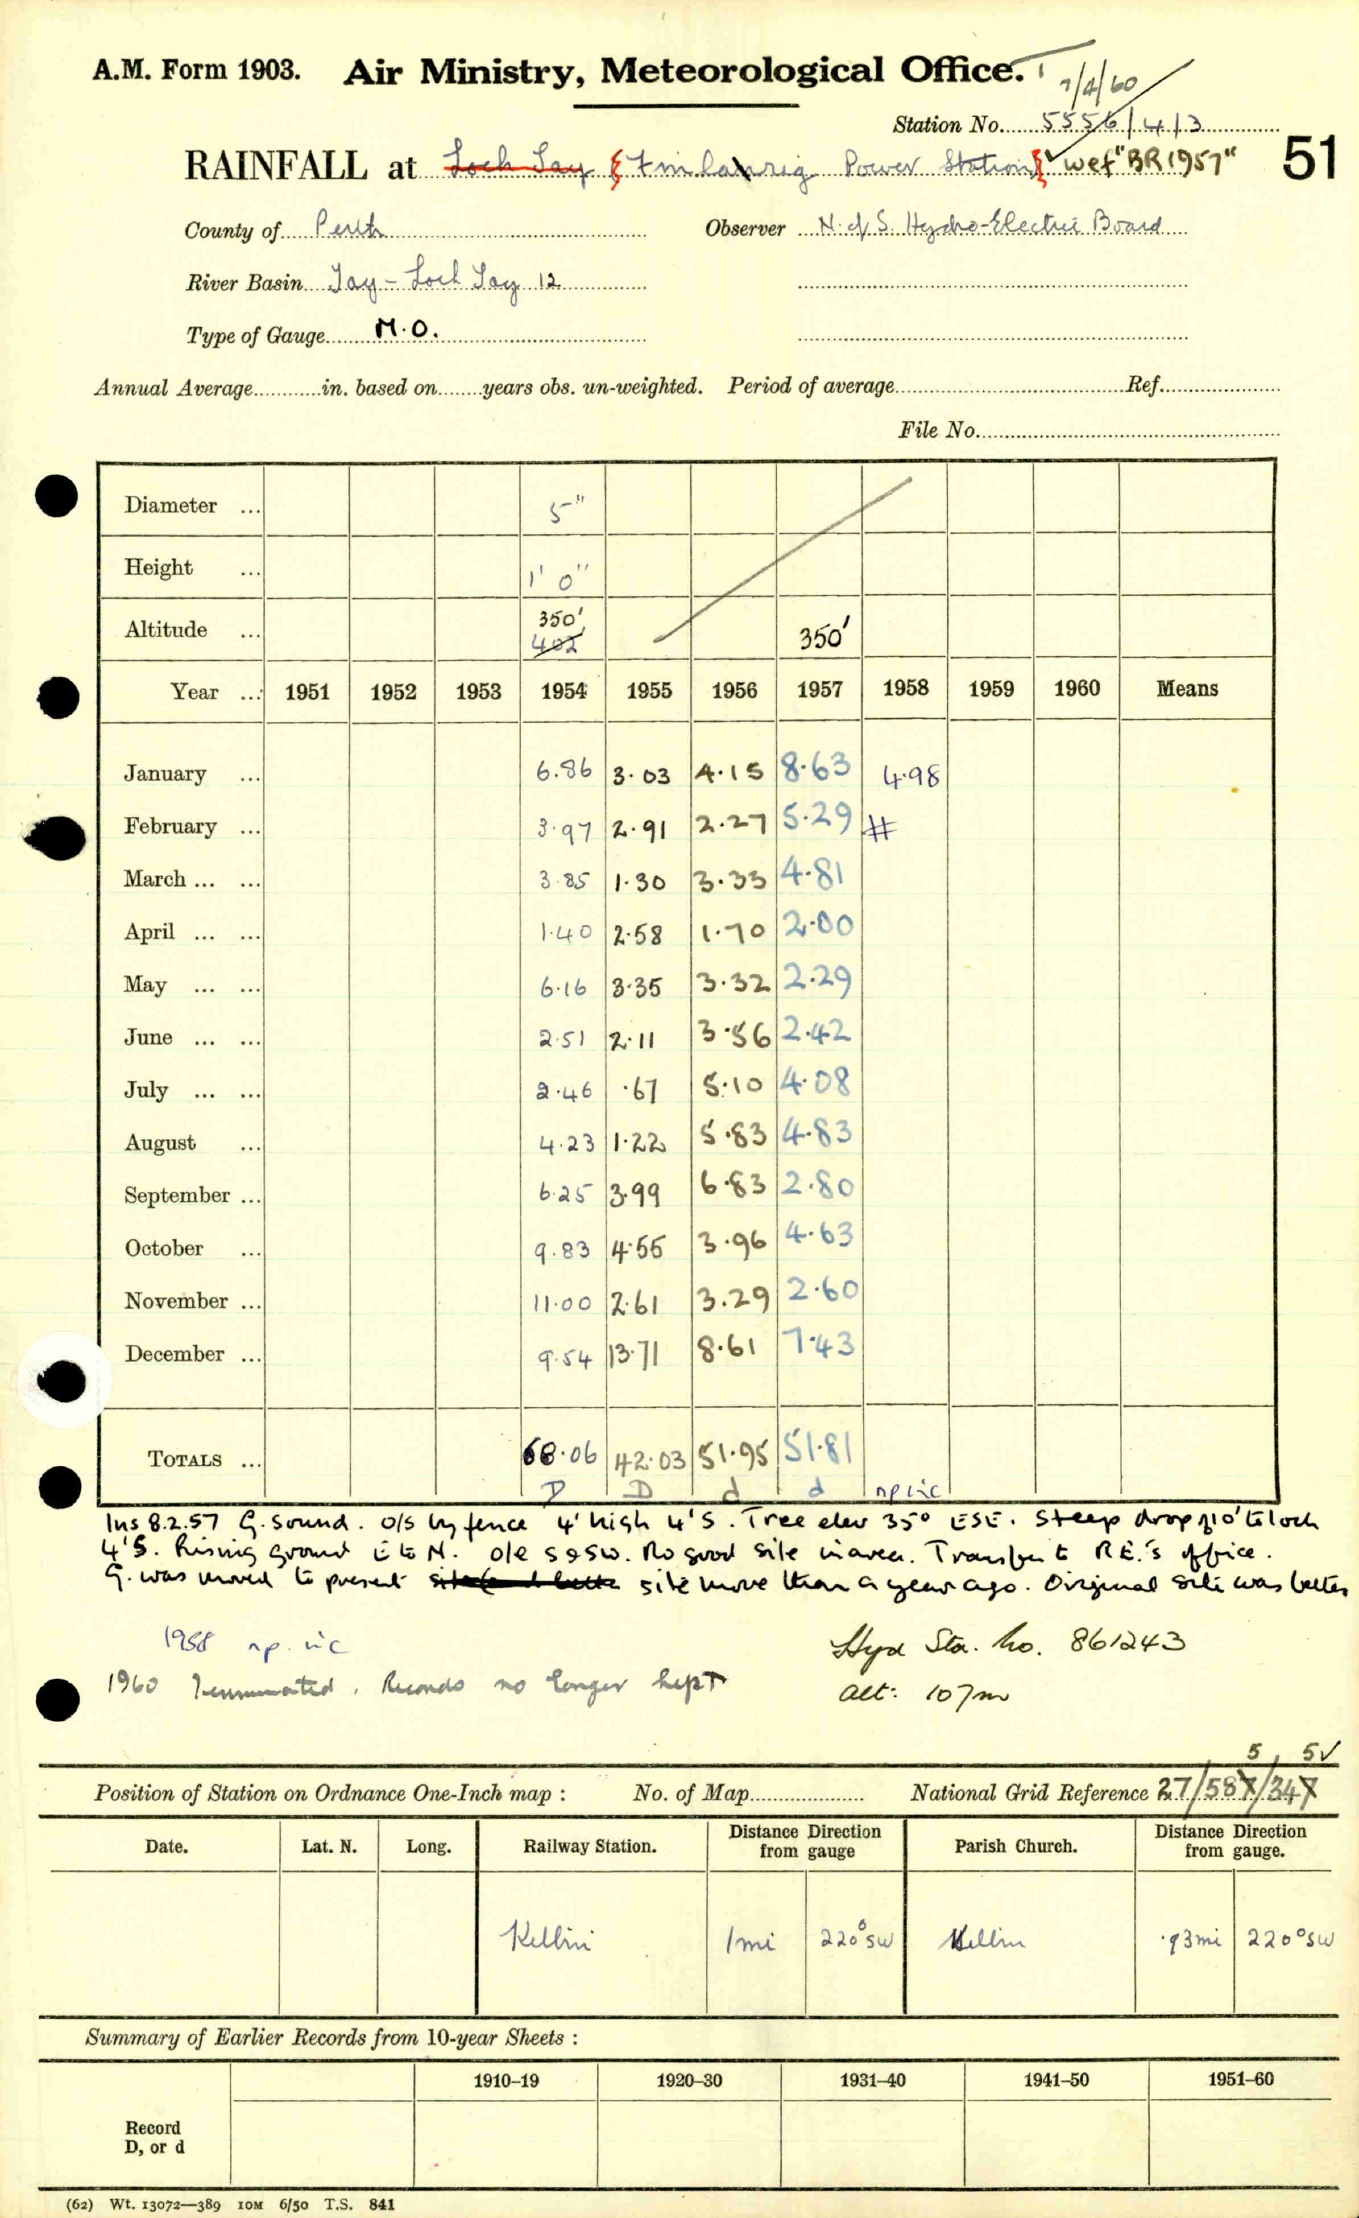 A.M. Form 1903. Air Ministry, Meteorological Office.
7/4/60
Station No. 5556/4/3
RAINFALL at Loch Tay { Finlarig Power Station } ✓ wef "BR1957" 51
County of Perth Observer N. of S. Hydro-Electric Board
River Basin Tay - Loch Tay 12
Type of Gauge M.O.
Annual Average in. based on years obs. un-weighted. Period of average Ref.
File No.
Diameter ... 5"
Height ... 1' 0"
Altitude ... 350' 402 350'
Year ... 1951 1952 1953 1954 1955 1956 1957 1958 1959 1960 Means
January ... 6.86 3.03 4.15 8.63 4.98
February ... 3.97 2.91 2.27 5.29 #
March ... ... 3.85 1.30 3.33 4.81
April ... ... 1.40 2.58 1.70 2.00
May ... ... 6.16 3.35 3.32 2.29
June ... ... 2.51 2.11 3.56 2.42
July ... ... 2.46 .67 5.10 4.08
August ... 4.23 1.22 5.83 4.83
September ... 6.25 3.99 6.83 2.80
October ... 9.83 4.55 3.96 4.63
November ... 11.00 2.61 3.29 2.60
December ... 9.54 13.71 8.61 7.43
TOTALS ... 68.06 42.03 51.95 51.81
D D d d np inc
Ins 8.2.57 G. sound. o/s by fence 4' high 4'S. Tree elev 35° ESE. Steep drop of 10' to loch
4'S. Rising ground E to N. o/e S & SW. No good site in area. Transfer to R.E.'s office.
G. was moved to present site more than a year ago. Original site was better
1958 np. inc Hyd Sta. No. 861243
1960 Terminated. Records no longer kept Alt: 107m
5 5✓
Position of Station on Ordnance One-Inch map : No. of Map National Grid Reference 27/587/347
Date. Lat. N. Long. Railway Station. Distance from Direction gauge Parish Church. Distance from Direction gauge.
Killin 1mi 220° SW Killin .93mi 220° SW
Summary of Earlier Records from 10-year Sheets :
1910–19 1920–30 1931–40 1941–50 1951–60
Record
D, or d
(62) Wt. 13072—389 10M 6/50 T.S. 841